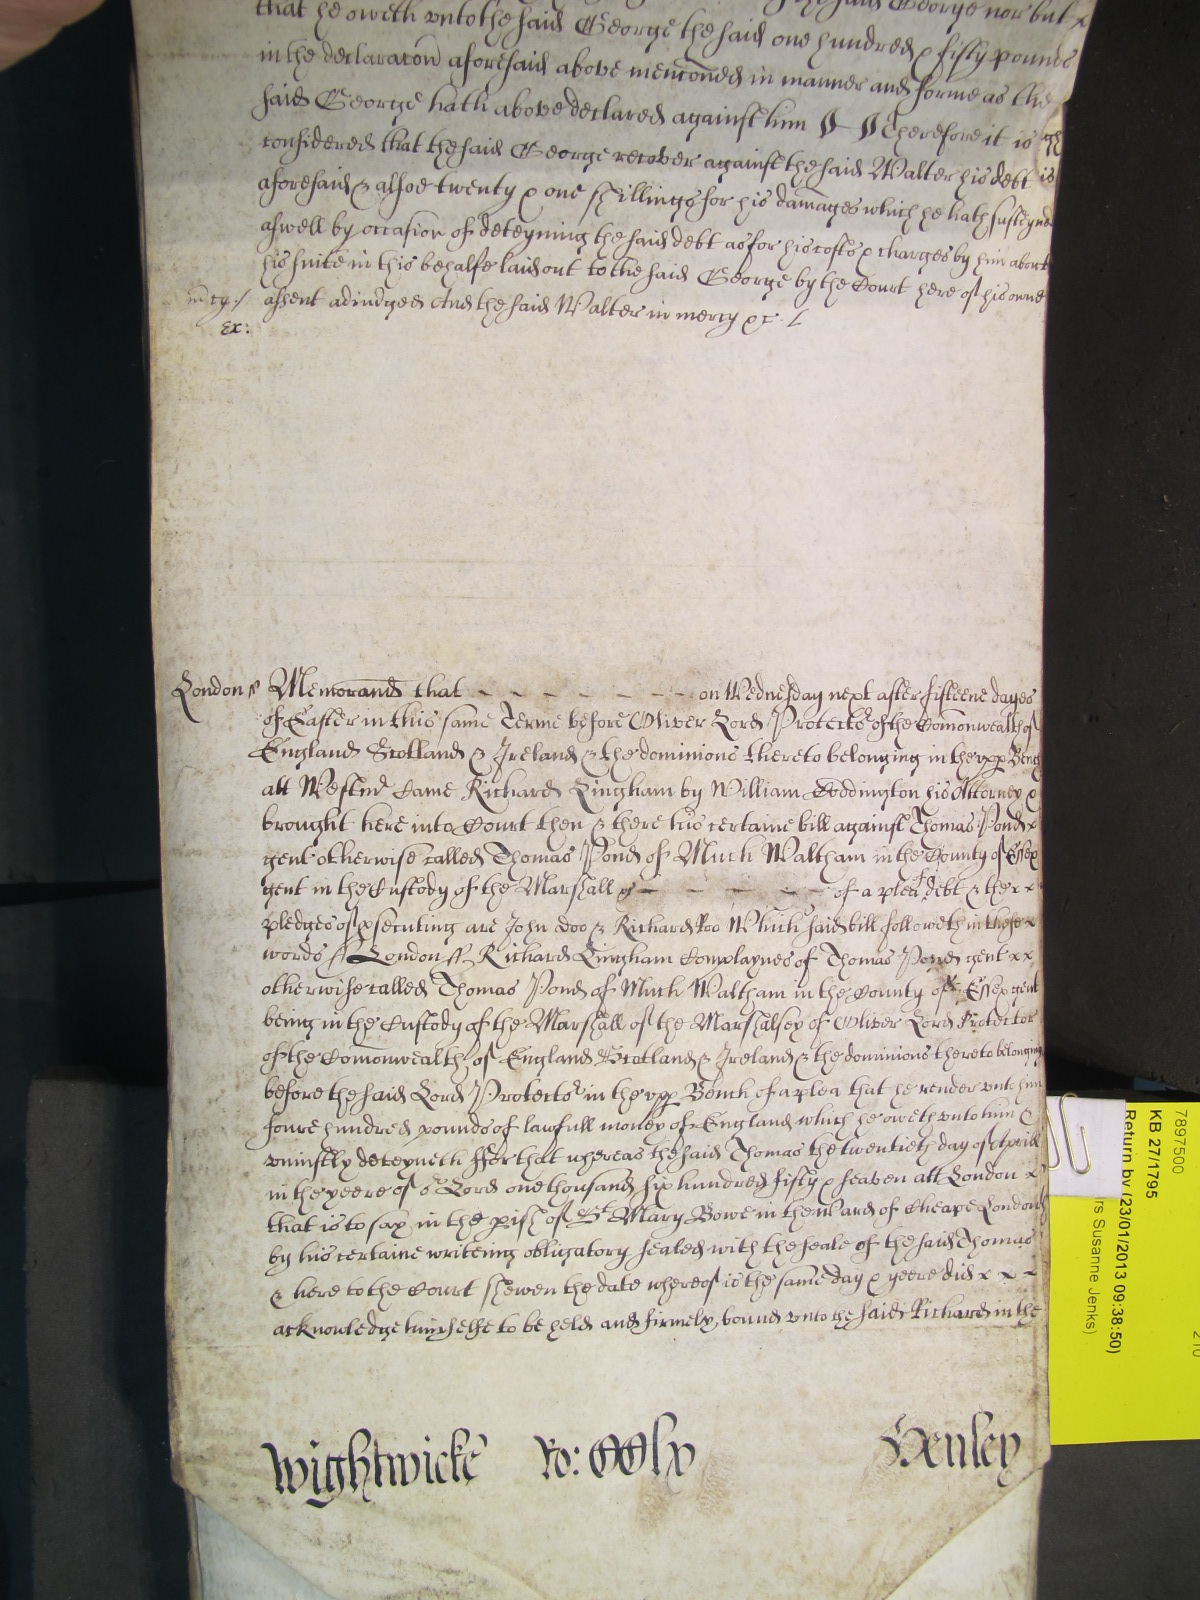 that he oweth unto the said George the said one hundred & fifty pounds
in the declaracon aforesaid above menconed in manner and forme as the
said George hath above declared against him Therefore it is
considered that the said George recover against the said Walter his debt
aforesaid & alsoe twenty & one shillings for his damages which he hath susteyned
aswell by occasion of deteyning the said debt as for his costs & charges by him about
his suite in this behalfe laid out to the said George by the Court here of his owne
mcy assent adiudged And the said Walter in mercy &c
Ex:
London ss Memorand that on Wednesday next after fifteene dayes
of Easter in this same Terme before Oliver Lord Protector of the Comonwealth of
England Scotland & Ireland & the dominions thereto belonging in the upp Bench
att Westmr Came Richard Lingham by William Coddington his Attorney &
brought here into Court then & there his certaine bill against Thomas Pond
gent otherwise called Thomas Pond of Much Waltham in the County of Essex
gent in the Custody of the Marshall &c of a plea of debt & there
pledges of psecuting are John Doo & Richard Roo Which said bill followeth in these
words ss London ss Richard Lingham Complaynes of Thomas Pond gent
otherwise called Thomas Pond of Much Waltham in the County of Essex gent
being in the Custody of the Marshall of the Marshalsey of Oliver Lord Protector
of the Comonwealth of England Scotland & Ireland & the dominions thereto belonging
before the said Lord Protector in the upp Bench of a plea that he render unto him
foure hundred pounds of lawfull money of England which he oweth unto him &
uniustly deteyneth ffor that whereas the said Thomas the twentieth day of Aprill
in the yeere of or Lord one thousand six hundred fifty & seaven att London
that is to say in the pish of St Mary Bowe in the Ward of Cheape London
by his certaine writeing obligatory sealed with the seale of the said Thomas
& here to the Court shewen the date whereof is the same day & yeere did
acknowledge himselfe to be held and firmely bound unto the said Richard in the
Wightwicke Ro: Henley
7897500
KB 27/1795
Return by (23/01/2013 09:38:50)
rs Susanne Jenks)
210